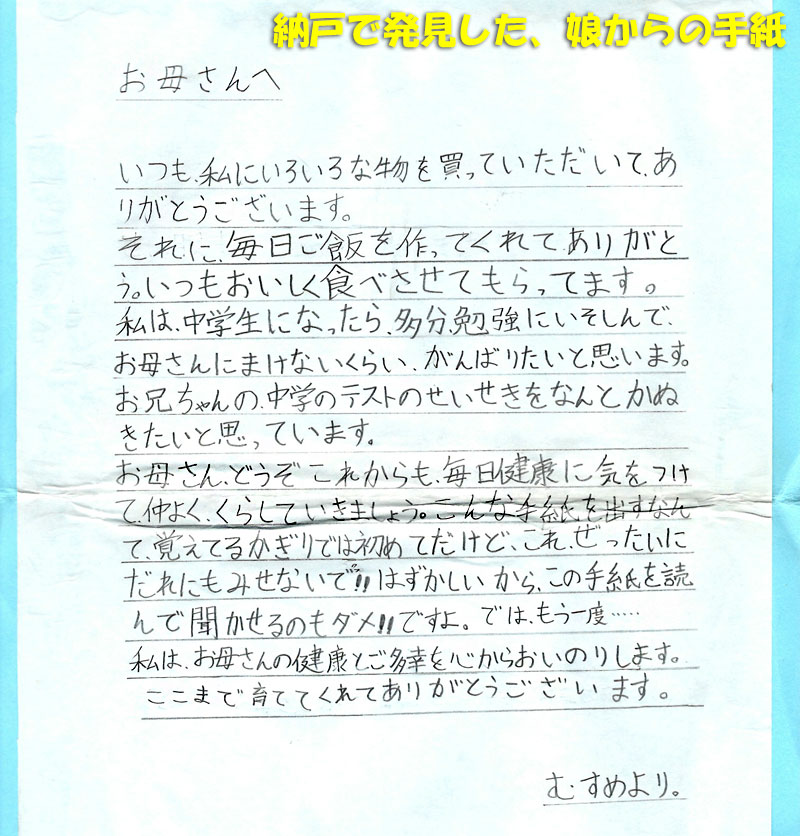 納戸で発見した、娘からの手紙
お母さんへ
いつも、私にいろいろな物を買っていただいて、あ
りがとうございます。
それに、毎日ご飯を作ってくれてありがと
う。いつもおいしく食べさせてもらってます。
私は、中学生になったら、多分、勉強にいそしんで、
お母さんにまけないくらい、がんばりたいと思います。
お兄ちゃんの、中学のテストのせいせきをなんとかぬ
きたいと思っています。
お母さん、どうぞこれからも、毎日健康に気をつけ
て、仲よく、くらしていきましょう。こんな手紙を出すなん
て、覚えてるかぎりでは初めてだけど、これ、ぜったいに
だれにもみせないで!!はずかしいから、この手紙を読
んで聞かせるのもダメ!!ですよ。では、もう一度……
私は、お母さんの健康とご多幸を心からおいのりします。
ここまで育ててくれてありがとうございます。
むすめより。